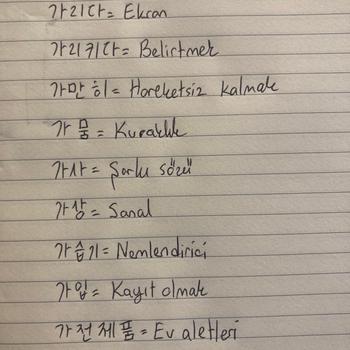 가리다= Ekran
가리키다= Belirtmek
가만히= Hareketsiz kalmak
가뭄= Kuraklık
가사= Şarkı sözü
가상= Sanal
가습기= Nemlendirici
가입= Kayıt olmak
가전제품= Ev aletleri